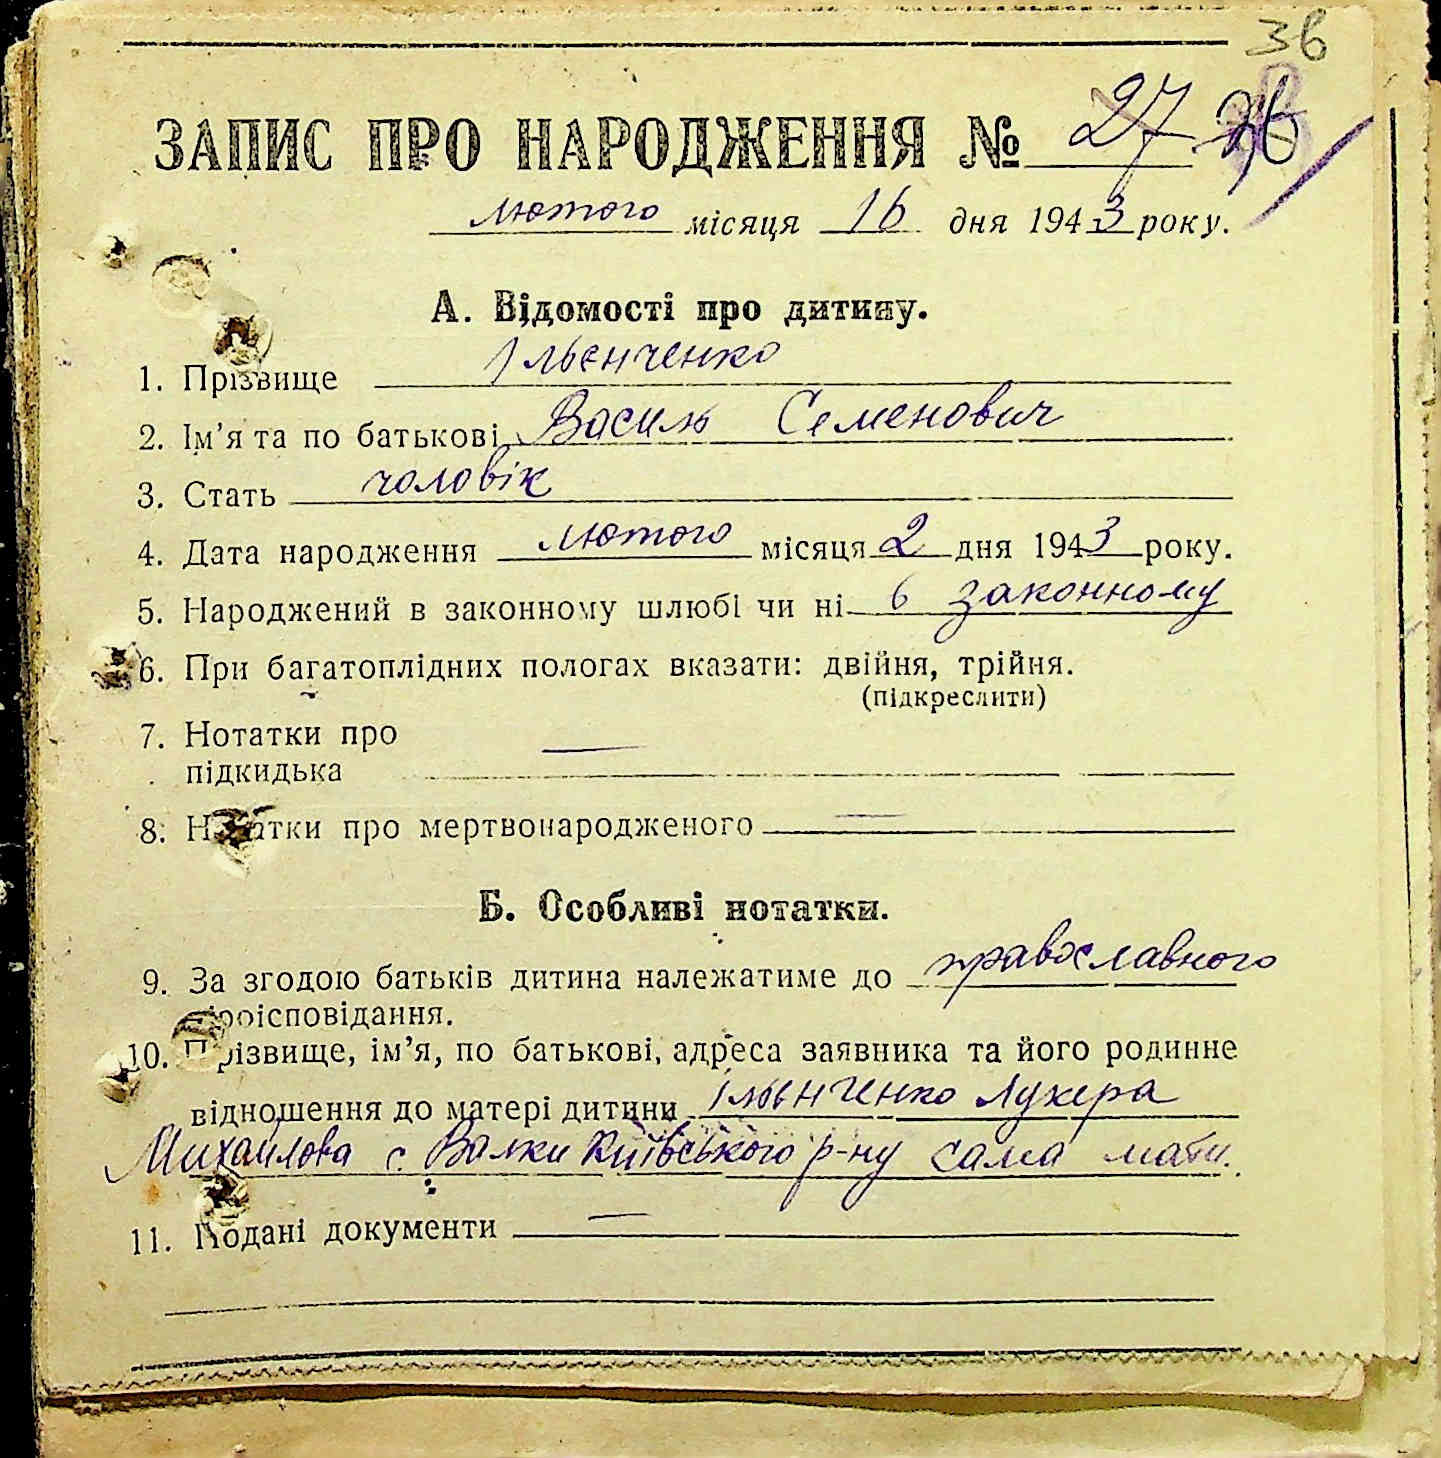 36
ЗАПИС ПРО НАРОДЖЕННЯ № 27 26
лютого місяця 16 дня 1943 року.
А. Відомості про дитину.
1. Прізвище Ільєнченко
2. Ім’я та по батькові Василь Семенович
3. Стать чоловік
4. Дата народження лютого місяця 2 дня 1943 року.
5. Народжений в законному шлюбі чи ні в законному
6. При багатоплідних пологах вказати: двійня, трійня.
(підкреслити)
7. Нотатки про —
підкидька
8. Нотатки про мертвонародженого —
Б. Особливі нотатки.
9. За згодою батьків дитина належатиме до православного
віроісповідання.
10. Прізвище, ім’я, по батькові, адреса заявника та його родинне
відношення до матері дитини Ільєнченко Лукера
Михайлова с. Валки Київського р-ну сама мати.
11. Подані документи —